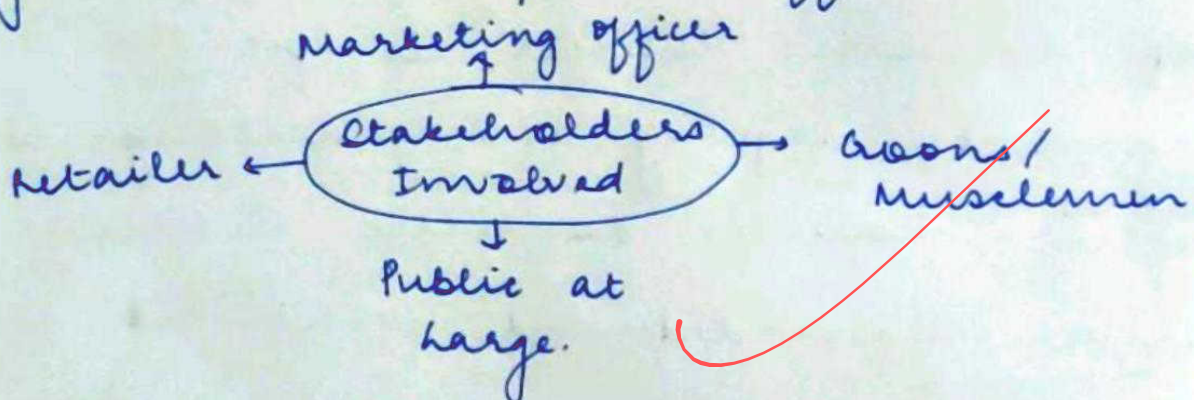 Marketing officer
Stakeholders
Involved
Retailer
Goons/
Musclemen
Public at
Large.